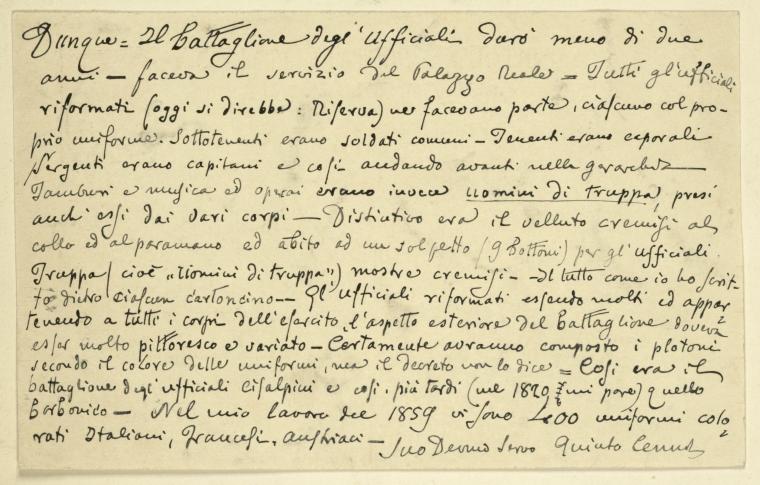 Dunque = Il battaglione degl'Ufficiali durò meno di due
anni — faceva il servizio del Palazzo Reale = Tutti gl'ufficiali
riformati (oggi si direbbe: Riserva) ne facevano parte, ciascuno col pro-
prio uniforme. Sottotenenti erano soldati comuni — Tenenti erano caporali
Sergenti erano capitani e così andando avanti nella gerarchia —
Tamburi e musica ed operai erano invece uomini di truppa, presi
anch'essi dai vari corpi — Distintivo era il velluto cremisi al
collo ed al paramano ed abito ad un sol petto (9 bottoni) per gl'ufficiali.
Truppa (cioè "Uomini di truppa") mostre cremisi — Il tutto come io ho scrit-
to dietro ciascun cartoncino — Gl'ufficiali riformati essendo molti ed appar
tenendo a tutti i corpi dell'esercito, l'aspetto esteriore del battaglione doveva
esser molto pittoresco e variato — Certamente avranno composto i plotoni
secondo il colore delle uniformi, ma il decreto non lo dice = Così era il
battaglione degl'ufficiali Cisalpini e così più tardi (nel 1820 mi pare) quello
borbonico — Nel mio lavoro del 1859 vi sono 400 uniformi colo
rati Italiani, Francesi, Austriaci — Suo Devmo Servo Quinto Cenni